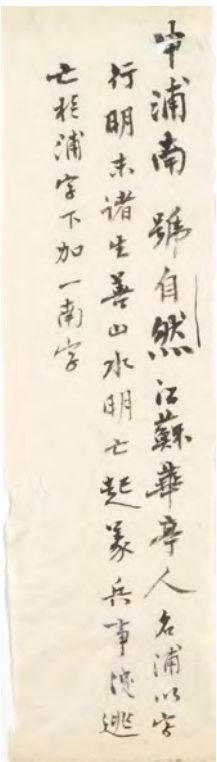 申浦南 號自然 江蘇華亭人 名浦以字
行明末諸生善山水明亡起義兵事洩逃
亡於浦字下加一南字